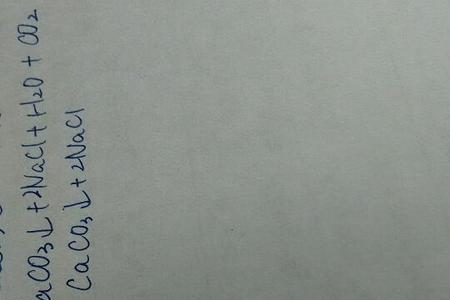 aCO3↓+2NaCl+H2O+CO2
CaCO3↓+2NaCl